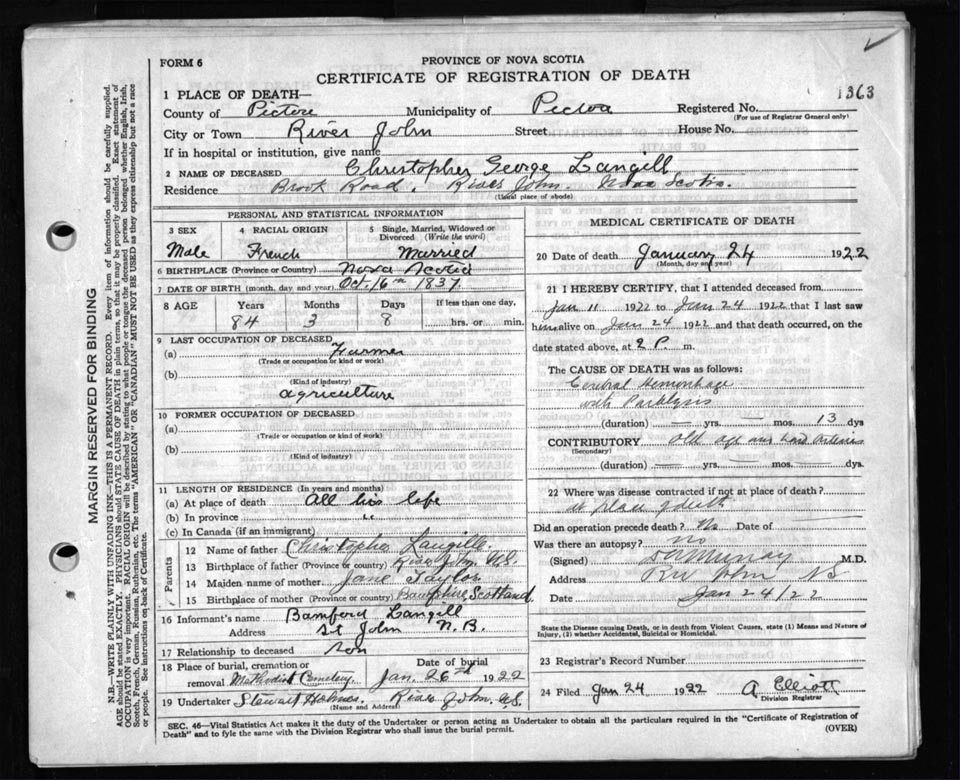 FORM 6
PROVINCE OF NOVA SCOTIA
CERTIFICATE OF REGISTRATION OF DEATH
1363
1 PLACE OF DEATH—
County of Pictou Municipality of Pictou Registered No.
(For use of Registrar General only)
City or Town River John Street House No.
If in hospital or institution, give name
2 NAME OF DECEASED Christopher George Langill
Residence Brook Road. River John. Nova Scotia.
(Usual place of abode)
PERSONAL AND STATISTICAL INFORMATION
3 SEX 4 RACIAL ORIGIN 5 Single, Married, Widowed or Divorced (Write the word)
Male French Married
6 BIRTHPLACE (Province or Country) Nova Scotia
7 DATE OF BIRTH (month, day and year) Oct. 16th 1837
8 AGE Years Months Days If less than one day,
84 3 8 hrs. or min.
9 LAST OCCUPATION OF DECEASED
(a) Farmer
(Trade or occupation or kind of work)
(b)
(Kind of industry)
agriculture
10 FORMER OCCUPATION OF DECEASED
(a)
(Trade or occupation or kind of work)
(b)
(Kind of industry)
11 LENGTH OF RESIDENCE (In years and months)
(a) At place of death All his life
(b) In province "
(c) In Canada (if an immigrant)
Parents
12 Name of father Christopher Langille
13 Birthplace of father (Province or country) River John N.S.
14 Maiden name of mother Jane Taylor
15 Birthplace of mother (Province or country) Banffshire, Scotland.
16 Informant's name Bamford Langill
Address St John N.B.
17 Relationship to deceased son
18 Place of burial, cremation or removal Methodist Cemetery Date of burial Jan. 26th 1922
19 Undertaker Stewart Holmes. River John. N.S.
(Name and Address)
MEDICAL CERTIFICATE OF DEATH
20 Date of death January 24 1922
(Month, day and year)
21 I HEREBY CERTIFY, that I attended deceased from
Jan 11 1922 to Jan 24 1922 that I last saw
him alive on Jan 24 1922 and that death occurred, on the
date stated above, at 2 P. m.
The CAUSE OF DEATH was as follows:
Cerebral Hemorrhage
with Paralysis
(duration) — yrs. — mos. 13 dys
CONTRIBUTORY old age and hard arteries
(Secondary)
(duration) — yrs. — mos. dys
22 Where was disease contracted if not at place of death?
at place of death
Did an operation precede death? No Date of —
Was there an autopsy? no
(Signed) M.D.
Address Riv John NS
Date Jan 24/22
State the Disease causing Death, or in death from Violent Causes, state (1) Means and Nature of Injury, (2) whether Accidental, Suicidal or Homicidal.
23 Registrar's Record Number
24 Filed Jan 24 1922 A Elliott
Division Registrar
SEC. 46—Vital Statistics Act makes it the duty of the Undertaker or person acting as Undertaker to obtain all the particulars required in the "Certificate of Registration of
Death" and to fyle the same with the Division Registrar who shall issue the burial permit.
(OVER)
MARGIN RESERVED FOR BINDING
N.B.—WRITE PLAINLY WITH UNFADING INK—THIS IS A PERMANENT RECORD. Every item of information should be carefully supplied.
AGE should be stated EXACTLY. PHYSICIANS should STATE CAUSE OF DEATH in plain terms, so that it may be properly classified. Exact statement of
OCCUPATION is very important. RACIAL ORIGIN will be described by stating to what people or tongue the deceased person belonged whether English, Irish,
Scotch, French, German, Russian, Ruthenian, etc. The terms "AMERICAN" OR "CANADIAN" MUST NOT BE USED as they express citizenship but not a race
or people. See instructions on back of Certificate.